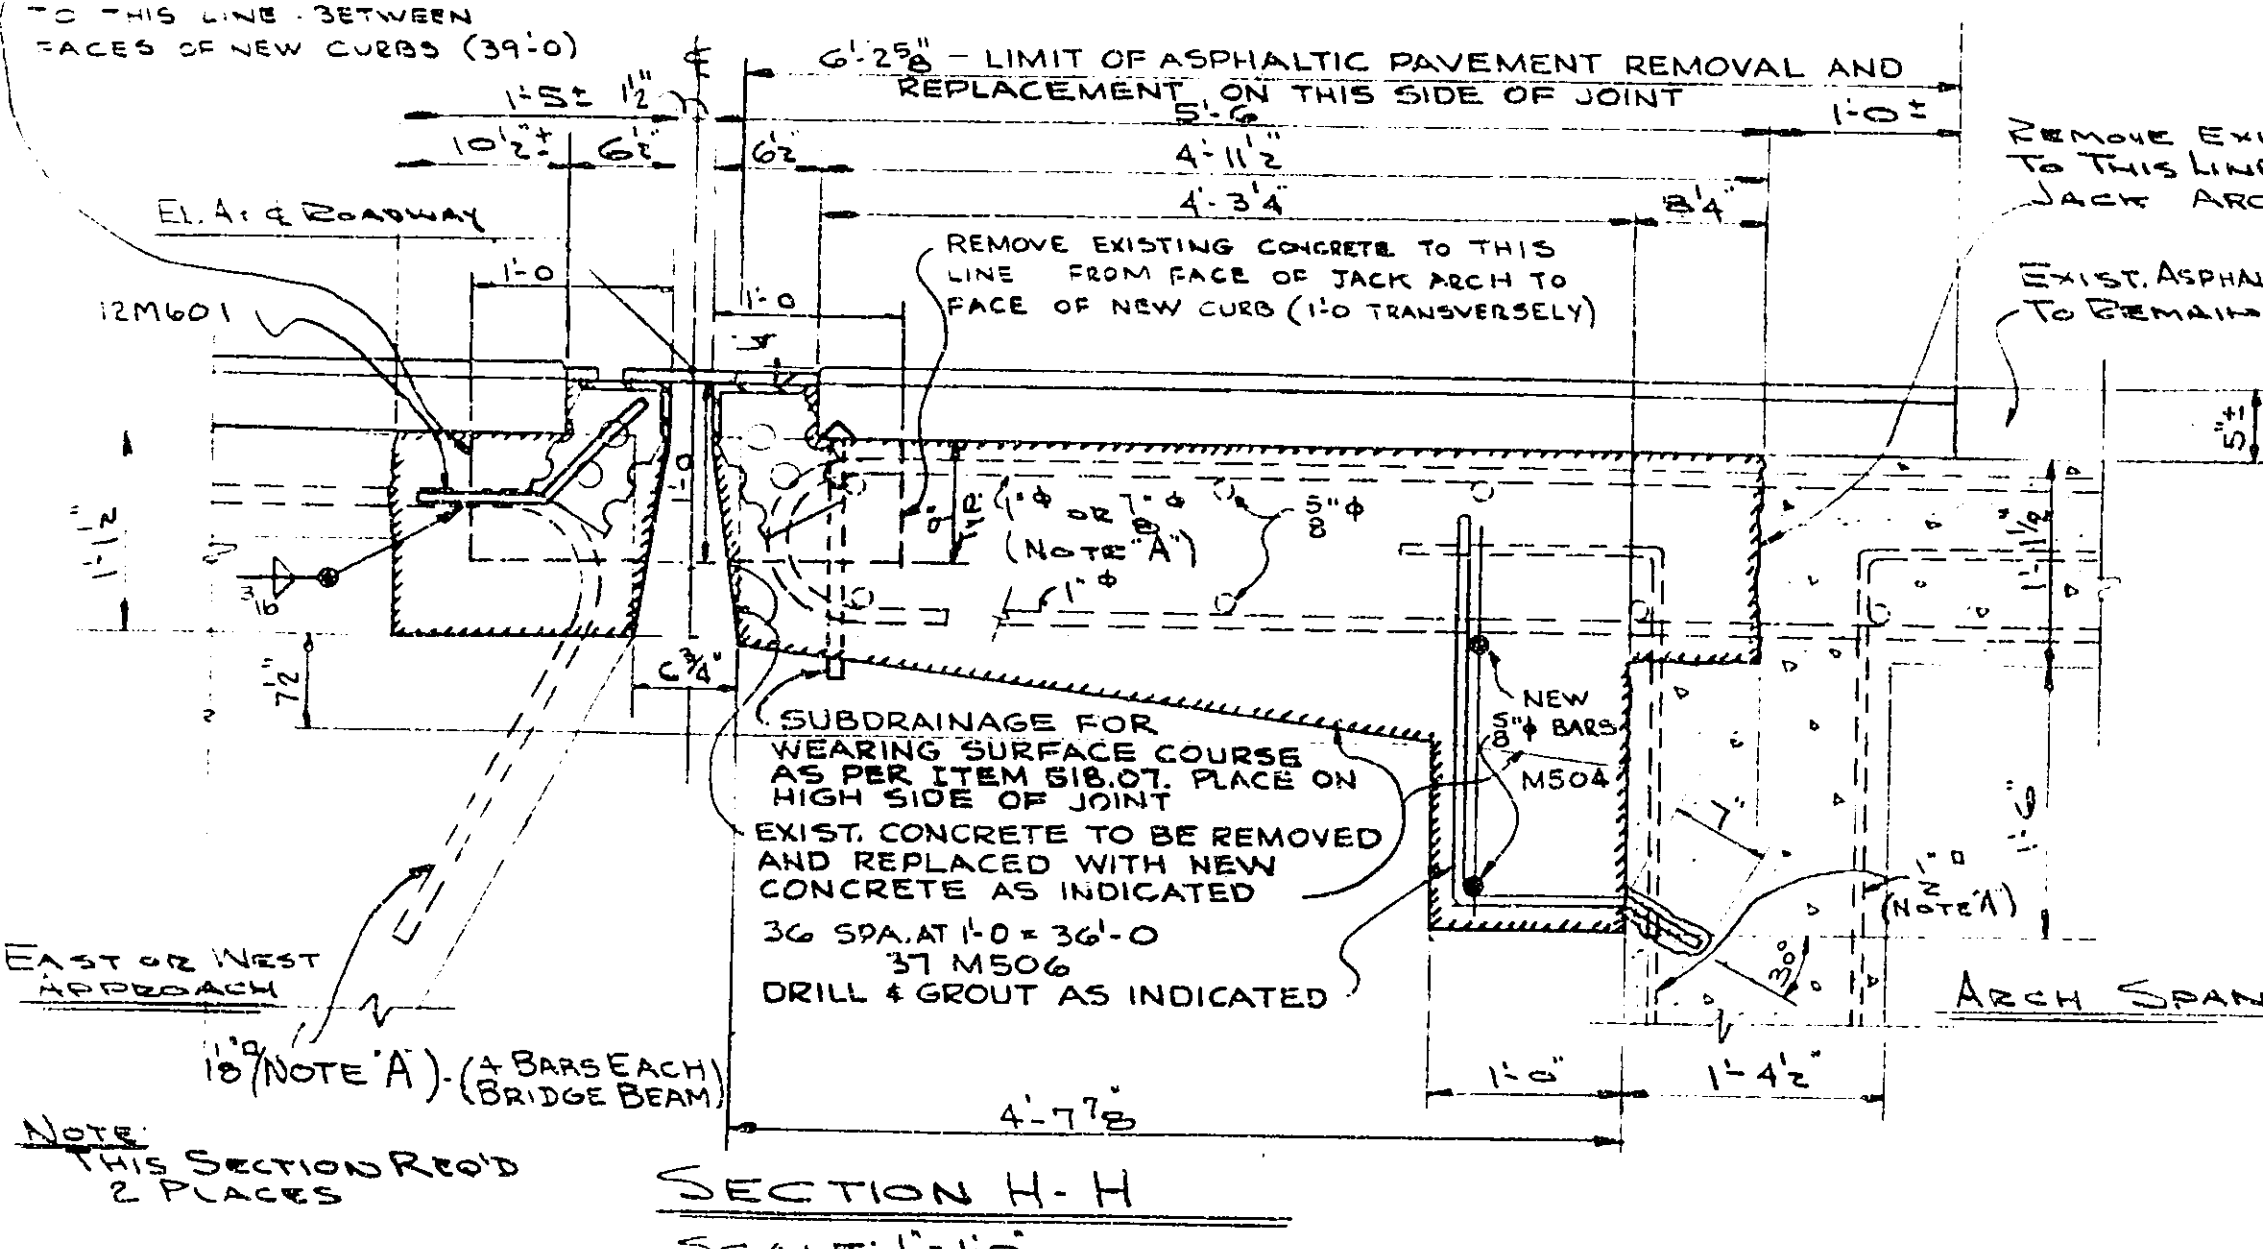 TO THIS LINE BETWEEN
FACES OF NEW CURBS (39'-0)
6'-2 5/8" - LIMIT OF ASPHALTIC PAVEMENT REMOVAL AND
REPLACEMENT ON THIS SIDE OF JOINT
1'-5± 1/2"
5'-6
1'-0±
10 1/2"± 6 1/2" 6 1/2
4'-11 1/2
4'-3 1/4" 8 1/4"
REMOVE
TO THIS LINE
JACK
EL. AT ℄ ROADWAY
1'-0
1'-0
REMOVE EXISTING CONCRETE TO THIS
LINE FROM FACE OF JACK ARCH TO
FACE OF NEW CURB (1'-0 TRANSVERSELY)
EXIST.
TO REMAIN
12M601
5"±
1'-1 1/2"
1"ϕ OR 7/8"ϕ
(NOTE "A")
5/8"ϕ
1"ϕ
1'-1 1/2"
3/16
7 1/2"
6 3/4"
NEW
5/8"ϕ BARS
M504
SUBDRAINAGE FOR
WEARING SURFACE COURSE
AS PER ITEM 518.07. PLACE ON
HIGH SIDE OF JOINT
7"
1'-6"
EXIST. CONCRETE TO BE REMOVED
AND REPLACED WITH NEW
CONCRETE AS INDICATED
1/2"□
(NOTE "A")
36 SPA. AT 1'-0 = 36'-0
37 M506
DRILL & GROUT AS INDICATED
30°
EAST OR WEST
APPROACH
ARCH SPAN
(NOTE "A").(4 BARS EACH
BRIDGE BEAM)
1'-0" 1'-4 1/2"
4'-7 7/8"
NOTE:
THIS SECTION REQ'D
2 PLACES
SECTION H-H